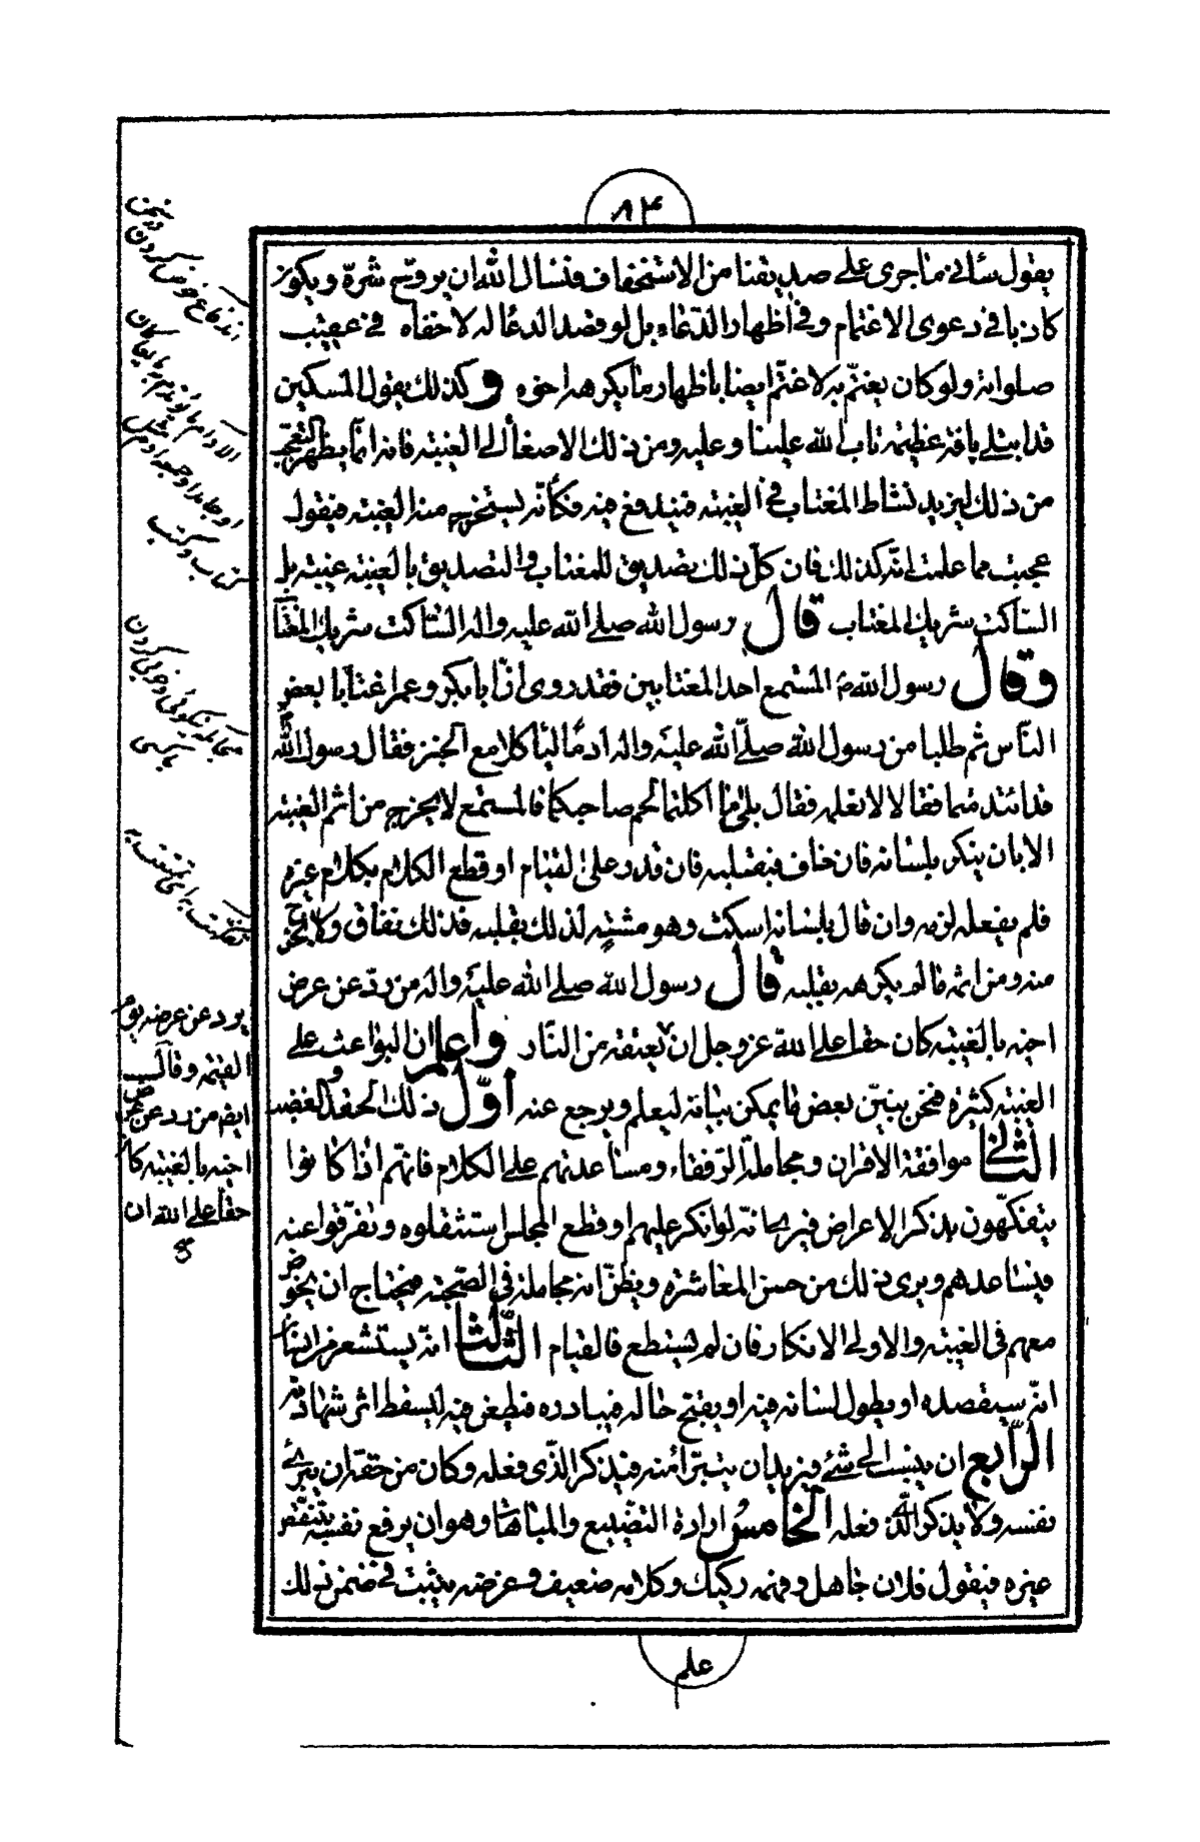 ٨٤
يقول ساءني ما جرى على صديقنا من الاستخفاف فنسال الله ان يروّح سرّه ويكون
كاذبا في دعوى الاغتمام وفي اظهار الدّعاء بل لو قصد الدعا له لاخفاه في عقيب
صلوانه ولو كان يغتمّ به لاغتمّ ايضا باظهار ما يكرهه اخوه وكذلك يقول المسكين
قد ابتلي بافة عظيمة تاب الله علينا وعليه ومن ذلك الاصغأ الى الغيبة فانه انما يظهر التعجّب
من ذلك ليزيد نشاط المغتاب في الغيبته فيندفع فيه فكأنّه يستخرج منه الغيبة فيقول
عجبت مما علمت انّه كذلك فان كلّ ذلك تصديق للمغتاب والتصديق بالغيبة غيبة بل
السّاكت شريك المغتاب قال رسول الله صلى الله عليه واله السّاكت شريك المغتاب
وقال رسول الله ص المستمع احد المغتابين فقد روى انّ ابابكر وعمر اغتابا بعض
النّاس ثم طلبا من رسول الله صلّى الله عليه واله ادما ليأكلا مع الخبز فقال رسول الله
قد ائتدمتما فقالا لا نعلمه فقال بلى ما اكلتما لحم صاحبكما فالمستمع لا يخرج من اثم الغيبته
الا بان ينكر بلسانه فان خاف فبقلبه فان قدر على القيام او قطع الكلام بكلام غيره
فلم يفعله لزمه وان قال بلسانه اسكت وهو مشته لذلك بقلبه فذلك نفاق ولا يخرج
منه ومن اثمه ما لم يكرهه بقلبه قال رسول الله صلى الله عليه واله من ردّ عن عرض
اخيه بالغيبته كان حقا على الله عز وجل ان يعتقه من النّار واعلم ان البواعث على
الغيبة كثيرة فنحن نبيّن بعض ما يمكن بيانه ليعلم ويرجع عنه اوّل ذلك الحقد والغضب
الثاني موافقة الاقران ومجاملة الرّفقاء ومساعدتهم على الكلام فانّهم اذا كانوا
يتفكّهون بذكر الاعراض فيرى انّه لو انكر عليهم او قطع المجلس استثقلوه ونفّرقوا عنه
فيساعدهم ويرى ذلك من حسن المعاشرة ويظنّ انه مجاملة في الصّحبة فيحتاج ان يخوض
معهم في الغيبته والاولى الانكار فان لم يستطع فالقيام الثّالث انّه يستشعر من انسان
انّه سيقصده او يطول لسانه فيه او يقبّح حاله فيبادره فيطعن فيه ليسقط اثر شهادته
الرّابع ان ينسب الى شئ فيريد ان يتبرّأ منه فيذكر الذّي فعله وكان من حقه ان يبرئ
نفسه ولا يذكر الّذي فعله الخامس ارادة التصنيع والمباهاة وهو ان يرفع نفسه بتنقّص
غيره فيقول فلان جاهل وفهمه ركيك وكلامه ضعيف وغرضه يثبت في ضمن ذلك
علم
اندفاع خوض كردن
يرد عن عرضه يوم
القيمة وقال ص
ايضا من رد عن عرض
اخيه بالغيبته كان
حقا على الله ان